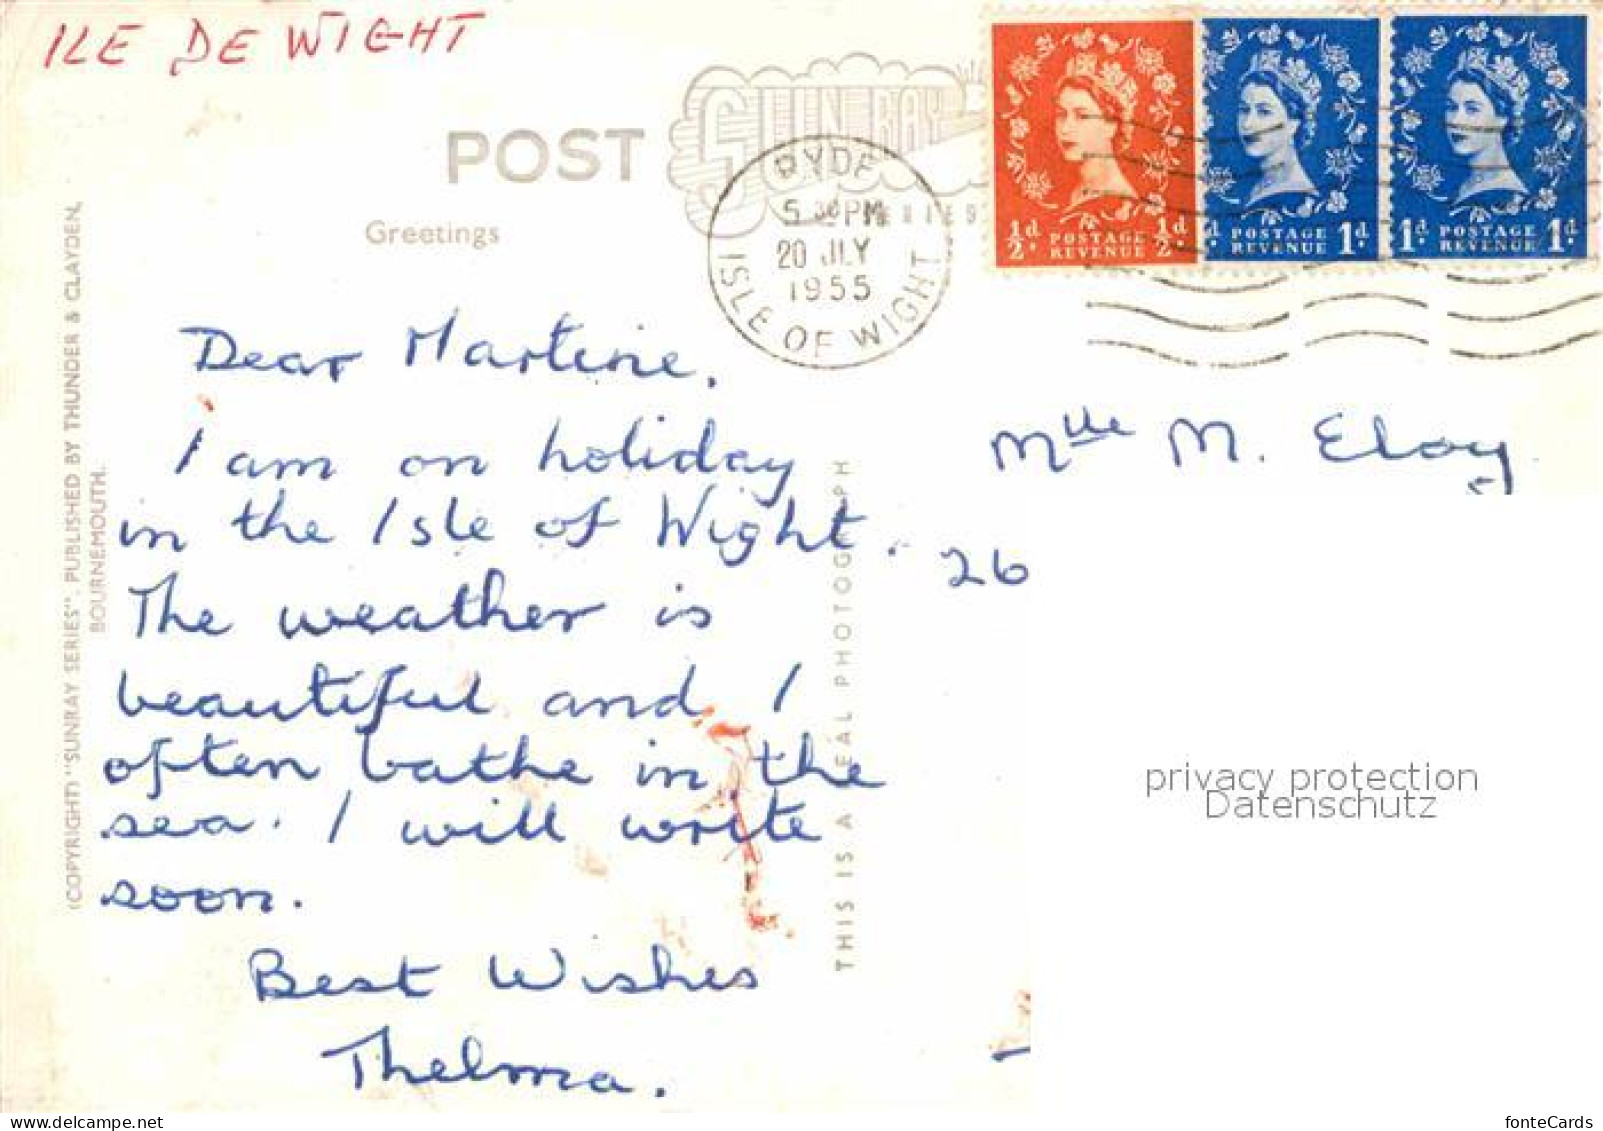 ILE DE WIGHT
POST
SUN RAY
SERIES
Greetings
RYDE
5 30 PM
20 JLY
1955
ISLE OF WIGHT
½d POSTAGE REVENUE ½d
POSTAGE REVENUE 1d
1d POSTAGE REVENUE 1d
(COPYRIGHT) "SUNRAY SERIES". PUBLISHED BY THUNDER & CLAYDEN,
BOURNEMOUTH.
Dear Martine,
I am on holiday
in the Isle of Wight.
The weather is
beautiful and I
often bathe in the
sea. I will write
soon.
Best Wishes
Thelma.
THIS IS A REAL PHOTOGRAPH
Mlle M. Eloy
26
privacy protection
Datenschutz
fonteCards